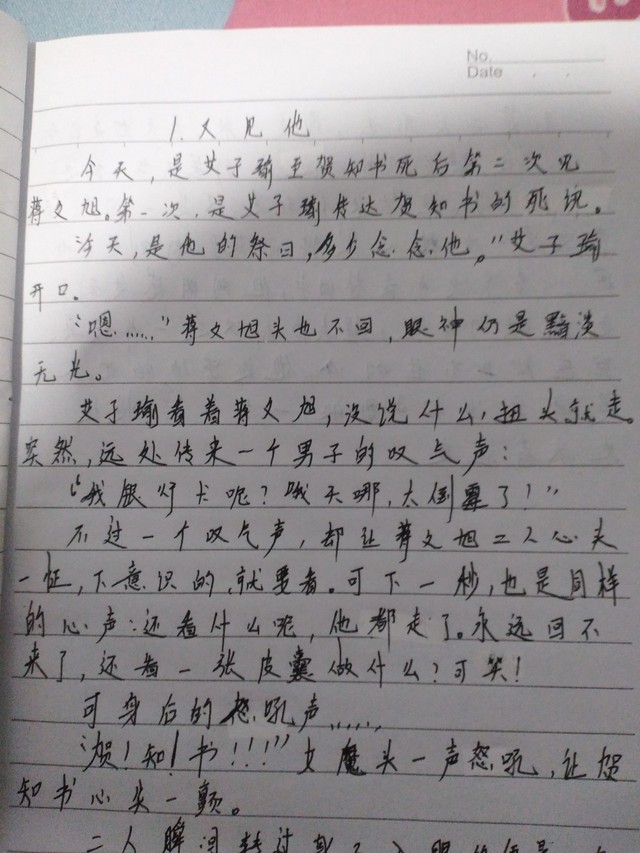 No.
Date
1.又见他
今天,是艾子瑜至贺知书死后第二次见
蒋文旭。第一次,是艾子瑜传达贺知书的死讯。
今天,是他的祭日,多少念念他。”艾子瑜
开口。
“嗯……”蒋文旭头也不回,眼神仍是黯淡
无光。
艾子瑜看着蒋文旭,没说什么,扭头就走。
突然,远处传来一个男子的叹气声:
“我银行卡呢?哦天哪,太倒霉了!”
不过一个叹气声,却让蒋文旭二人心头
一怔,下意识的,就要看。可下一秒,也是同样
的心声:还看什么呢,他都走了。永远回不
来了,还看一张皮囊做什么?可笑!
可身后的怒吼声……
“贺!知!书!!!”女魔头一声怒吼,让贺
知书心头一颤。
二人瞬间转过